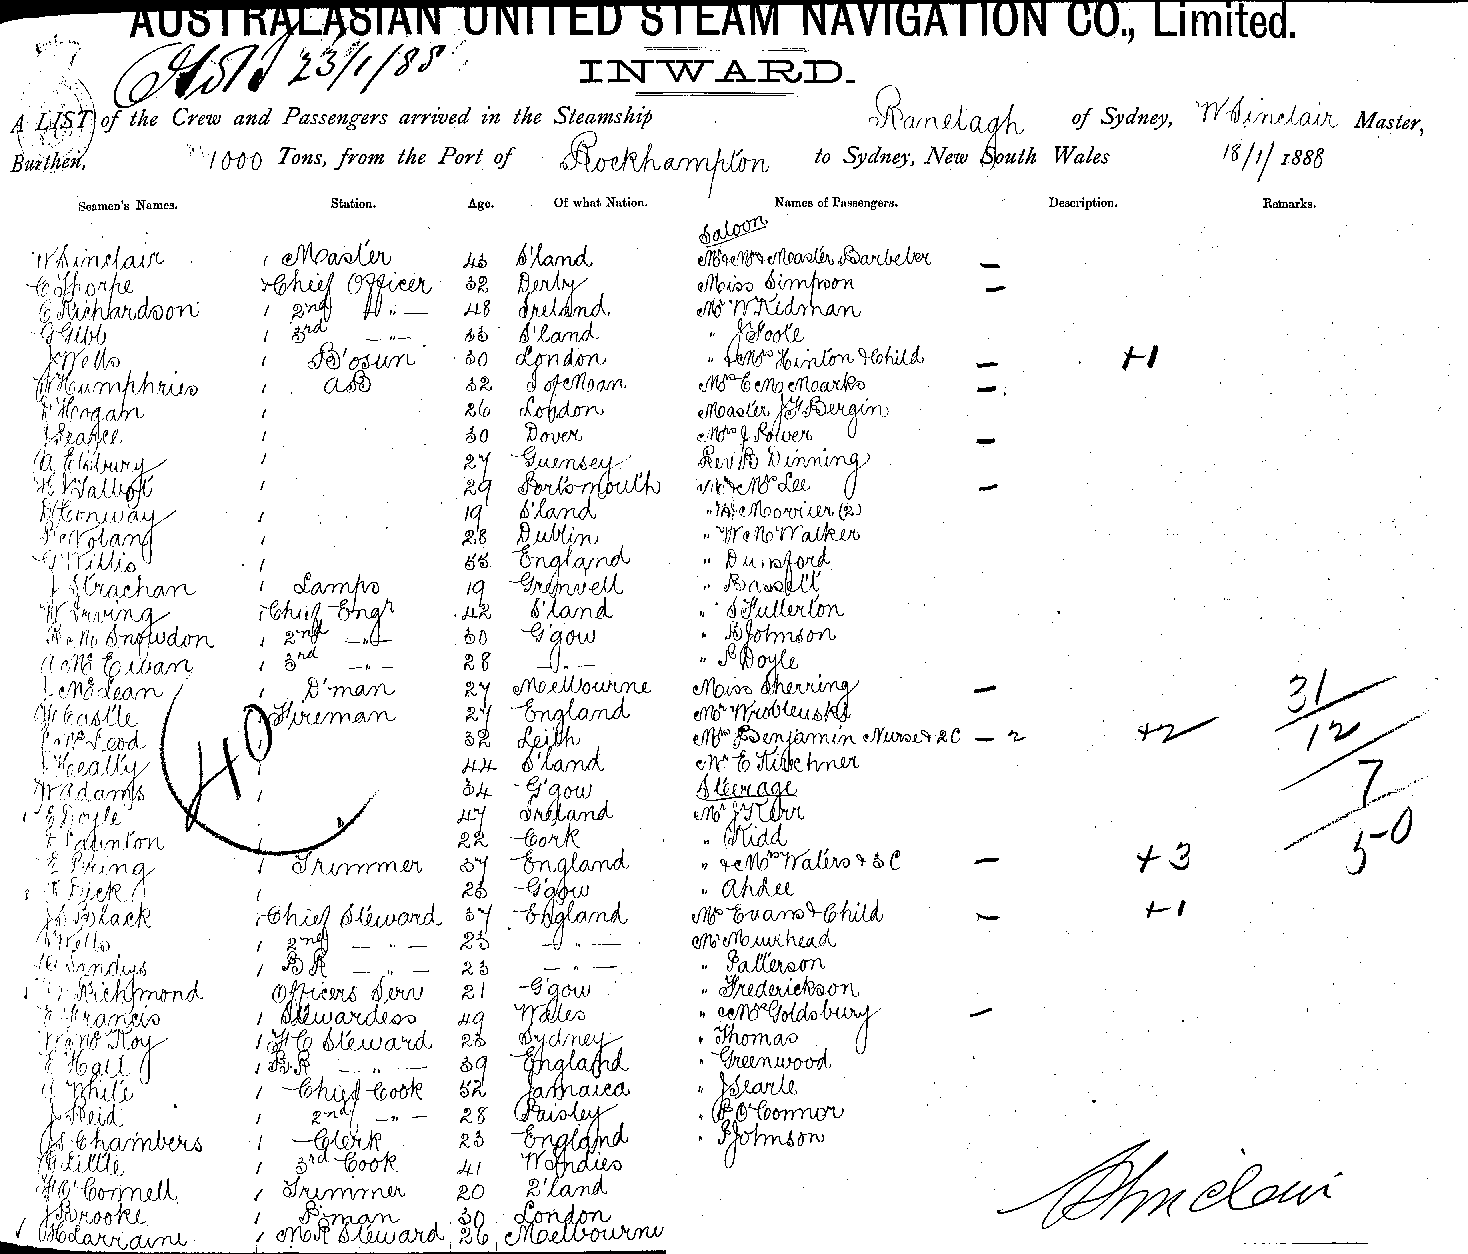 AUSTRALASIAN UNITED STEAM NAVIGATION CO., Limited.
23/1/88
INWARD.
A LIST of the Crew and Passengers arrived in the Steamship Ranelagh of Sydney, W Sinclair Master,
Burthen, 1000 Tons, from the Port of Rockhampton to Sydney, New South Wales 18/1/1888
Seamen's Names. Station. Age. Of what Nation. Names of Passengers. Description. Remarks.
Saloon
W Sinclair Master 43 S'land Mr & Mrs & Master Barbeler –
C Thorpe Chief Officer 32 Derby Miss Simpson –
E Richardson 2nd " — 48 Ireland Mr W Kidman
G Gibb 3rd — " — 33 S'land " J Foole
J Wells B'osun 30 London " & Mrs Hinton & Child – +1
W Humphries AB 32 I of Man Mrs E M Marks –
Horgan 26 London Master J F Bergin
J Searle 30 Dover Mrs J Power –
A Elsbury 27 Guensey Rev B Dinning
Talbot 29 Portsmouth Mr & Mrs Lee –
Conway 19 S'land " (2)
Nolan 28 Dublin " W M Walker
G Willis 33 England " Dunsford
J Strachan Lamps 19 Grenvell " Bassett
W Irving Chief Engr 42 S'land " S Fullerton
Snowdon 2nd — " — 30 G'gow " B Johnson
A McEwan 3rd — " — 28 — " — " P Doyle
J McLean D'man 27 Melbourne Miss Sherring –
Castle Fireman 27 England Mr Wroblewski
McLeod 32 Leith Mrs Benjamin Nurse & 2C – 2 +2
J Heally 44 S'land Mr E Kirchner
W Adams 34 G'gow Steerage
E Doyle 47 Ireland Mr J Kerr
Taunton 22 Cork " Kidd
E Pring Trimmer 37 England " & Mrs Waters & 3C – +3
Dick 23 G'gow " Ahdee
Black Chief Steward 37 England Mrs Evans & Child – +1
Wells 2nd — " — 23 — " — Mr Muirhead
Sandys BR — " — 23 — " — " Patterson
Richmond Officers Serv 21 G'gow " Frederickson
E Francis Stewardess 49 Wales " & Mrs Goldsbury –
W McKoy FC Steward 23 Sydney " Thomas
E Hall BR — " — 39 England " Greenwood
J White Chief Cook 32 Jamaica " J Searle
J Reid 2nd — " — 28 Paisley " P O'Connor
Chambers Clerk 23 England " P Johnson
Little 3rd Cook 41 W Indies
O'Connell Trimmer 20 Z'land
J Brooke F'man 30 London
Larraine M R Steward 26 Melbourne
40
31
12
7
50
Sinclair